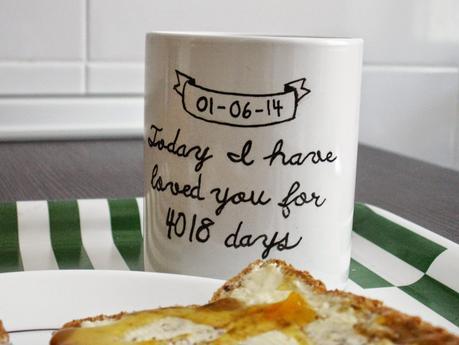 01-06-14
Today I have
loved you for
4018 days